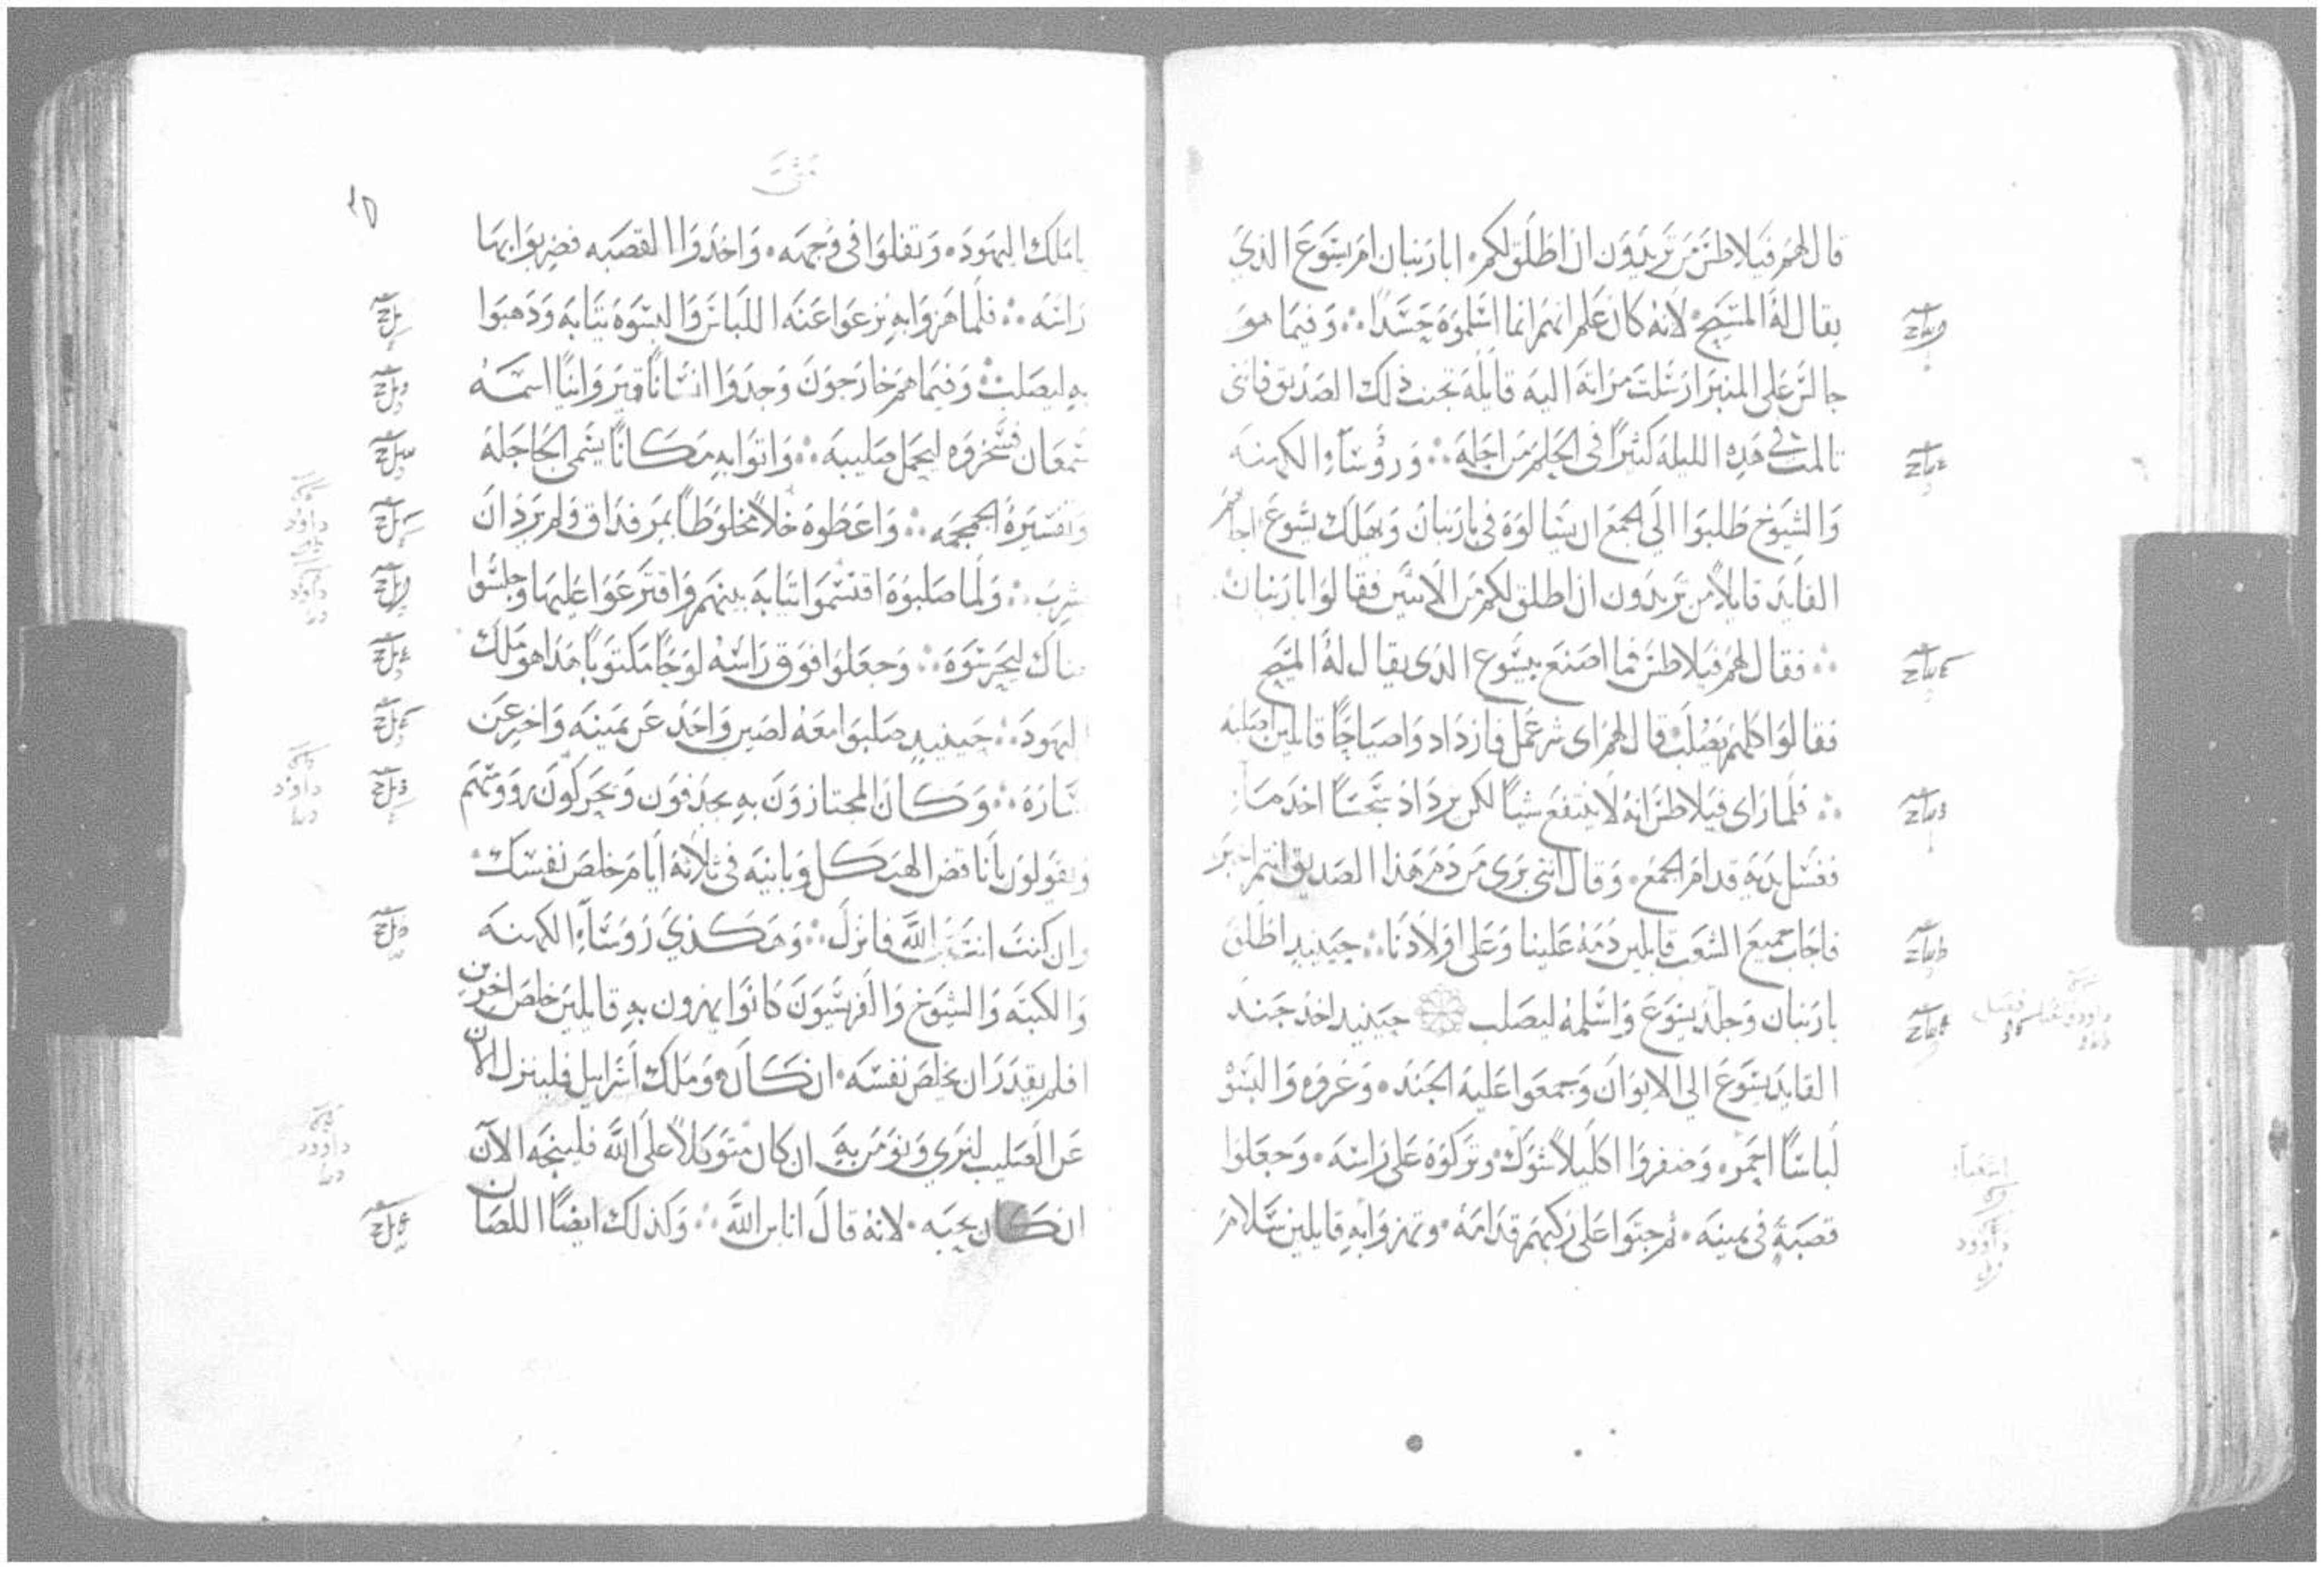 قال لهم فيلاطس من تريدون ان اطلق لكم ابارنبان ام يسوع الذي
يقال له المسيح لانه كان علم انهم انما اسلموه حسدا وفيما هو
جالس على المنبر ارسلت مراته اليه قايله تجنب ذلك الصديق فانى
تالمت في هذه الليله كثيرا في الحلم من اجله وروسآ الكهنه
والشيوخ طلبوا الى الجمع ان يسالوه في بارنبان ويهلك يسوع اجابهم
القايد قايلا من تريدون ان اطلق لكم من الاثنين فقالوا بارنبان
فقال لهم فيلاطس فما اصنع بيسوع الذى يقال له المسيح
فقالوا كلهم يصلب قال لهم اى شر عمل فازدادوا صياحا قايلين اصلبه
فلما راى فيلاطس انه لا ينتفع شيا لكن يزداد سجسا اخذ مآ
فغسل يديه قدام الجمع وقال اننى برى من دم هذا الصديق انتم
فاجاب جميع الشعب قايلين دمه علينا وعلى اولادنا حينيذ اطلق
بارنبان وجلد يسوع واسلمه ليصلب حينيذ اخذ جند
القايد يسوع الى الايوان وجمعوا عليه الجند وعروه والبسوه
لباسا احمر وضفروا اكليلا شوك وتركوه على راسه وجعلوا
قصبة في يمينه ثم جثوا على ركبهم قدامه وتهزوا به قايلين سلام
متى
يا ملك اليهود وتفلوا في وجهه واخذوا القصبه فضربوا بها
راسه فلما هزوا به نزعوا عنه اللباس والبسوه ثيابه وذهبوا
به ليصلب وفيما هم خارجون وجدوا انسانا قيروانيا اسمه
شمعان فسخروه ليحمل صليبه واتوا به مكانا يسمى الجاجله
وتفسيره الجمجمه واعطوه خلا مخلوطا بمر فذاق ولم يرد ان
يشرب ولما صلبوه اقتسموا ثيابه بينهم واقترعوا عليها وجلسوا
هناك ليحرسوه وجعلوا فوق راسه لوحا مكتوبا هذا هو ملك
اليهود حينيذ صلبوا معه لصين واحد عن يمينه واخر عن
يساره وكان المجتازون به يجدفون ويحركون رووسهم
ويقولون يا ناقض الهيكل وبانيه في ثلاثة ايام خلص نفسك
وان كنت انت ابن الله فانزل وهكذي روسآ الكهنه
والكتبه والشيوخ والفريسيون كانوا يهزون به قايلين خلص اخرين
افلم يقدر ان يخلص نفسه ان كان هو ملك اسراييل فلينزل الان
عن الصليب لنرى ونومن به ان كان متوكلا على الله فلينجه الان
ان كان يحبه لانه قال انا ابن الله وكذلك ايضا اللصان